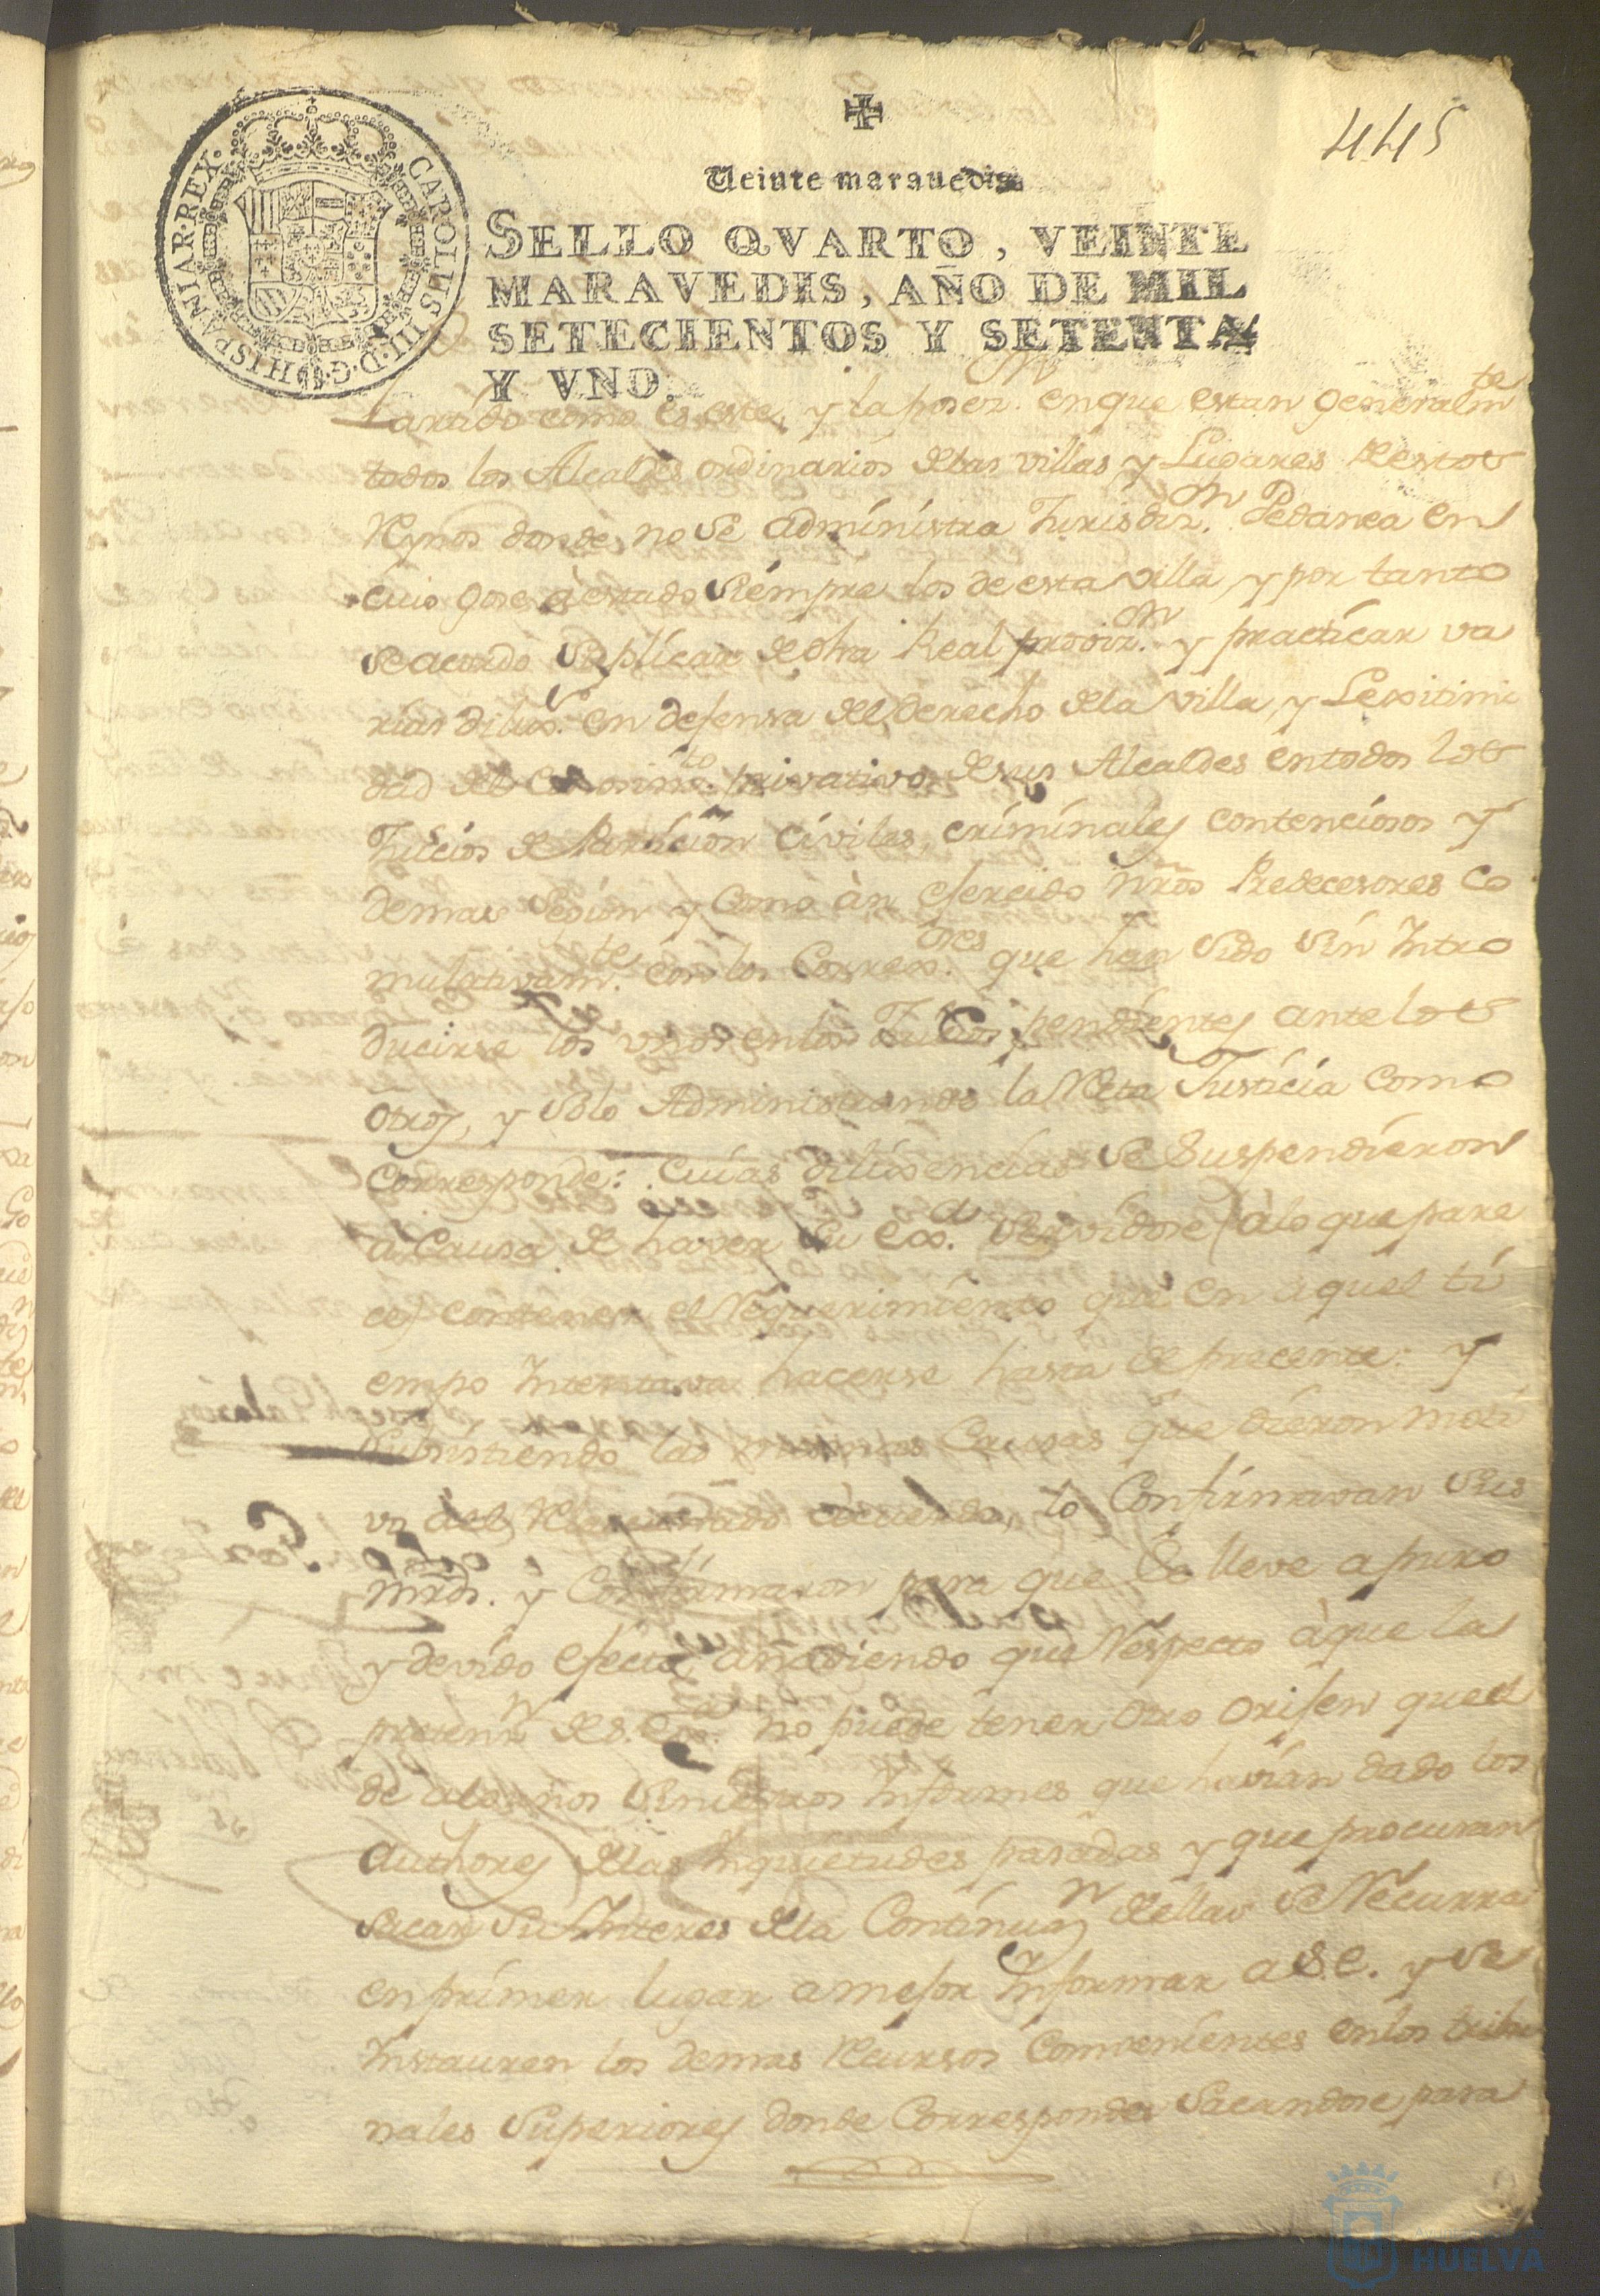 445
Veinte maravedis
SELLO QVARTO, VEINTE
MARAVEDIS, AÑO DE MIL
SETECIENTOS Y SETENTA
Y VNO.
CAROLUS III D. G. HISPANIAR. REX.
Partido como es este, y la poses.on en que estan generalm.te
todos los Alcaldes ordinarios de las villas y Lugares destos
Reynos donde no se administra Jurisdiz.on Pedanea en
cuio gose à estado siempre los de esta villa, y por tanto
se acordo suplicar de dha Real provis.on y practicar va
rias dilix.s en defensa del derecho de la villa, y Lexitimi
dad del Conosim.to privativo de sus Alcaldes en todos los
Juicios de Particion Civiles, criminales contenciosos y
demas segun y como àn efercido nros Predecesores co
mulativam.te con los Correx.ores que han sido sin Intro
ducirse los unos en los Juicios pendientes ante los
otros, y solo Administrando la Recta Justicia como
corresponde: Cuias dilixencias se suspendieron
a causa de haver su Ex.a servidose (à lo que pare
ce) contener el Requerimiento que en aquel ti
empo Intentava hacerse hasta de precente: y
subsistiendo las mismas Causas que dieron moti
vo del acuerdo, lo Confirmavan sus
mrds. y Confirmaron para que se lleve a puro
y devido efecto, añadiendo que Respecto à que la
preten.n de S. Ex.a no puede tener otro orifen que el
de algunos siniestros Informes que havian dado los
authores de las Inquietudes pasadas y que procuran
sacar su Interes de la Continua.n de ellas se Recurra
en primer lugar a mefor Informar a S.E. y se
Instauren los demas Recursos Convenientes en los tribu
nales Superiores donde Corresponde sacandose para
HUELVA